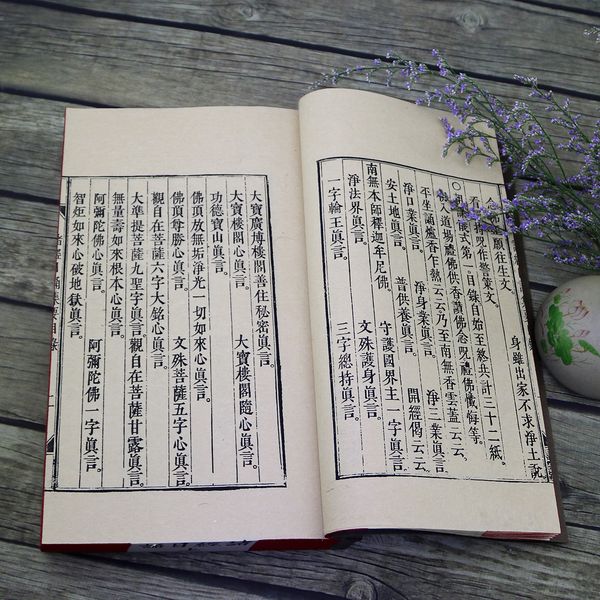 願往生文。 身雖出家不求淨土說
看 持呪作警策文。
儀式第一目錄自始至終共計三十二紙。
初入道場禮佛供香讀佛念呪禮佛懺悔等。
平坐誦爐香乍爇云云乃至南無香雲蓋云云。
淨口業眞言。 淨身業眞言。 淨三業眞言。
安土地眞言。 普供養眞言。 開經偈云云。
南無本師釋迦牟尼佛。 守護國界主一字眞言。
淨法界眞言。 文殊護身眞言。
一字輪王眞言。 三字總持眞言。
大寶廣博樓閣善住秘密眞言。
大寶樓閣心眞言。 大寶樓閣隨心眞言。
功德寶山眞言。
佛頂放無垢淨光一切如來心眞言。
佛頂尊勝心眞言。 文殊菩薩五字心眞言。
觀自在菩薩六字大銘心眞言。
大準提菩薩九聖字眞言觀自在菩薩甘露眞言。
無量壽如來根本心眞言。
阿彌陀佛心眞言。 阿彌陀佛一字眞言。
智炬如來心破地獄眞言。
目錄 二